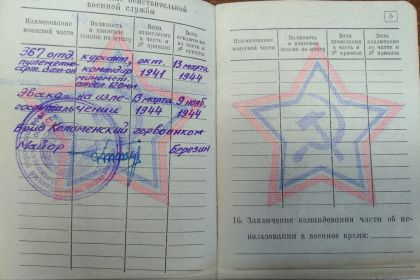 действительной
военной службы
Наименование воинской части
Должность и воинское звание по штату
Дата зачисления в часть и № приказа
Дата исключения из части и № приказа
367 отд. курсант, окт. 13 марта
пулеметно- командир 1941 1944
арт. дат-он миномет.
отдел. 120мм.
Эвако- на изле- 13 марта 9 нояб.
госпиталь чении 1944 1944
Врид Коломенский горвоенком
Майор Березин
5
Наименование воинской части
Должность и воинское звание по штату
Дата зачисления в часть и № приказа
Дата исключения из части и № приказа
16. Заключение командования части об ис-
пользовании в военное время: